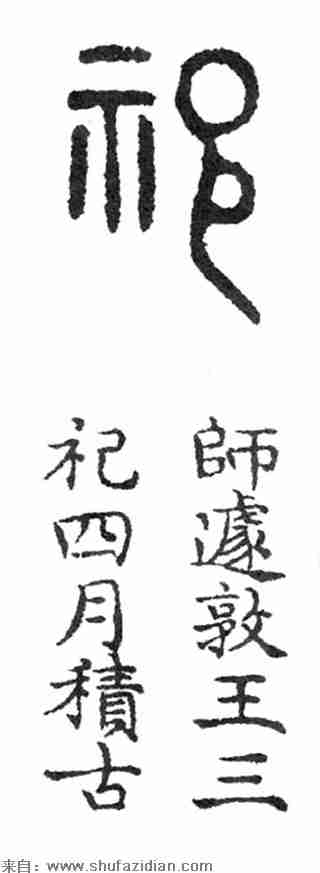 祀
師遽敦王三
祀四月積古
来自：www.shufazidian.com